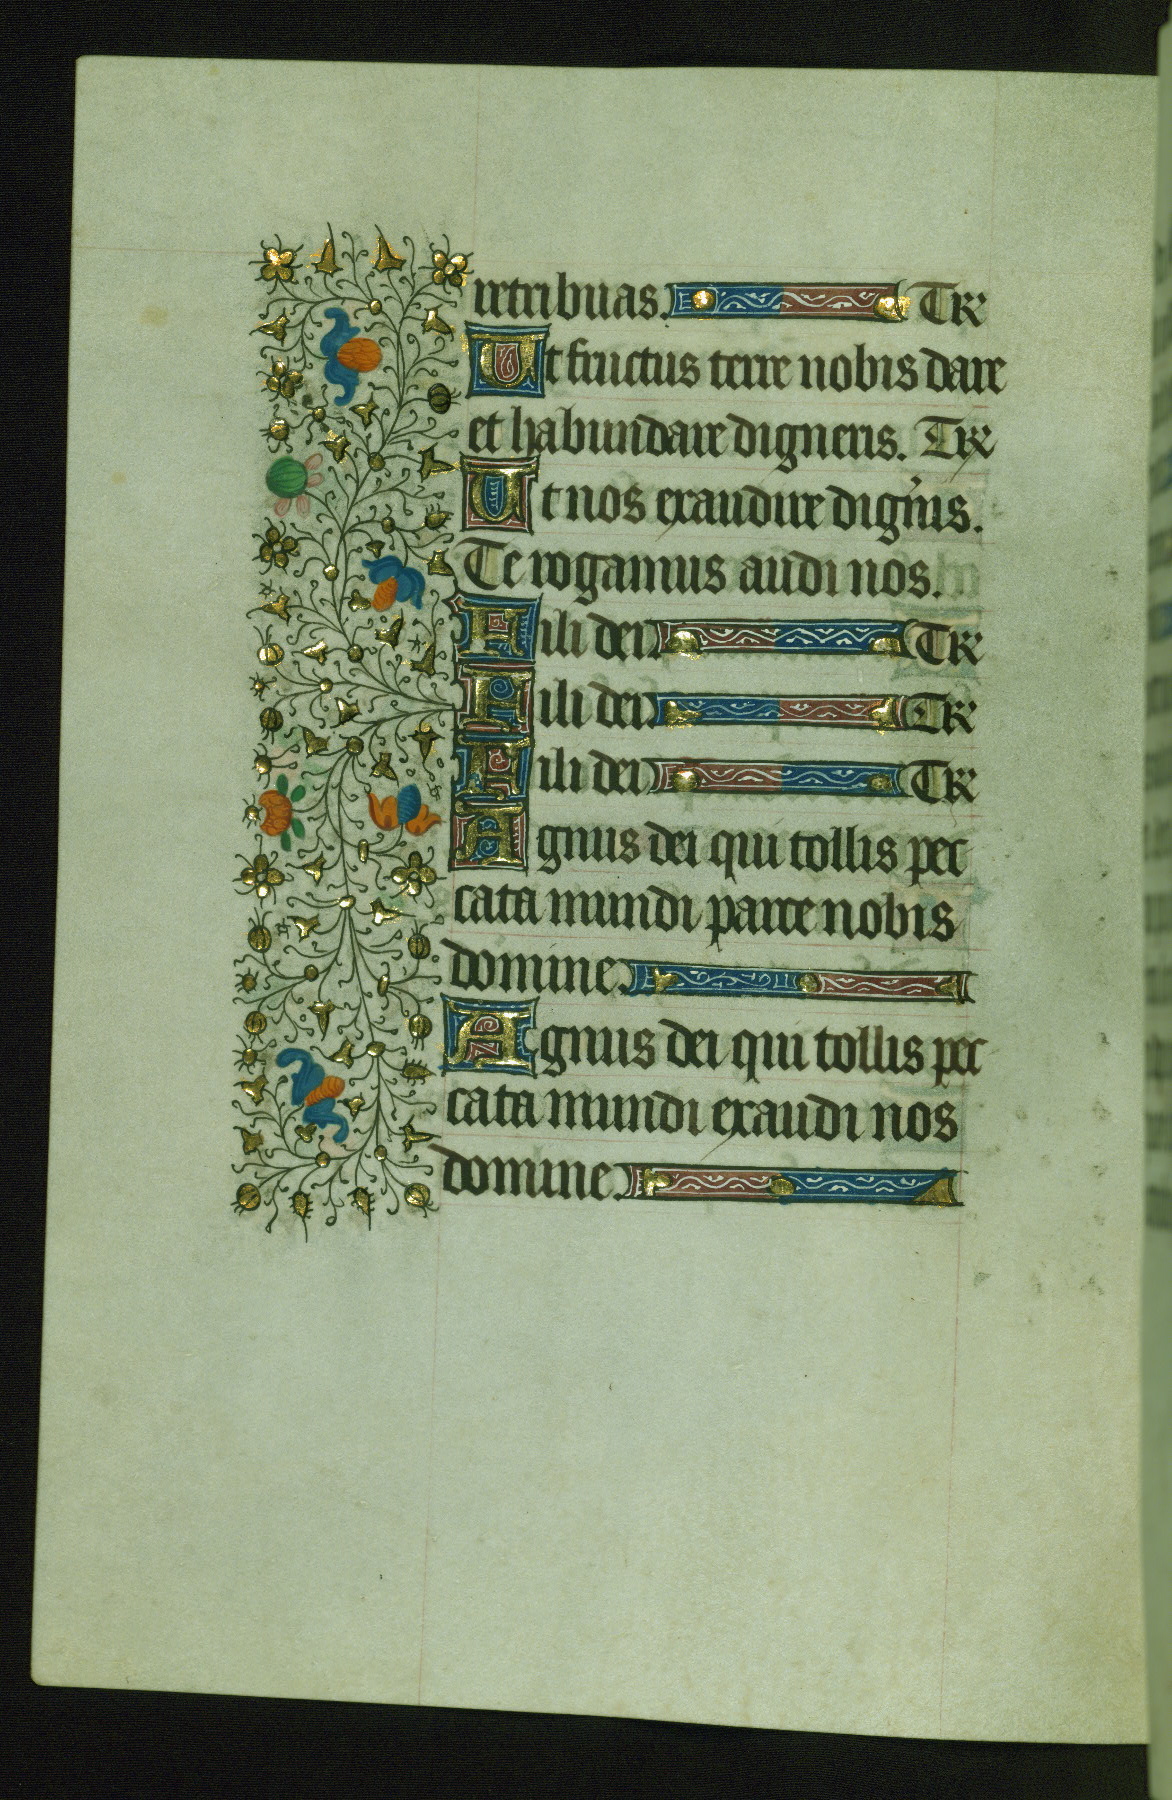 retribuas. TR
Ut fructus terre nobis dare
et habundare digneris. TR
Ut nos exaudire dign'is.
Te rogamus audi nos.
Fili dei TR
Fili dei TR
Fili dei TR
Agnus dei qui tollis pec
cata mundi parce nobis
domine.
Agnus dei qui tollis pec
cata mundi exaudi nos
domine.